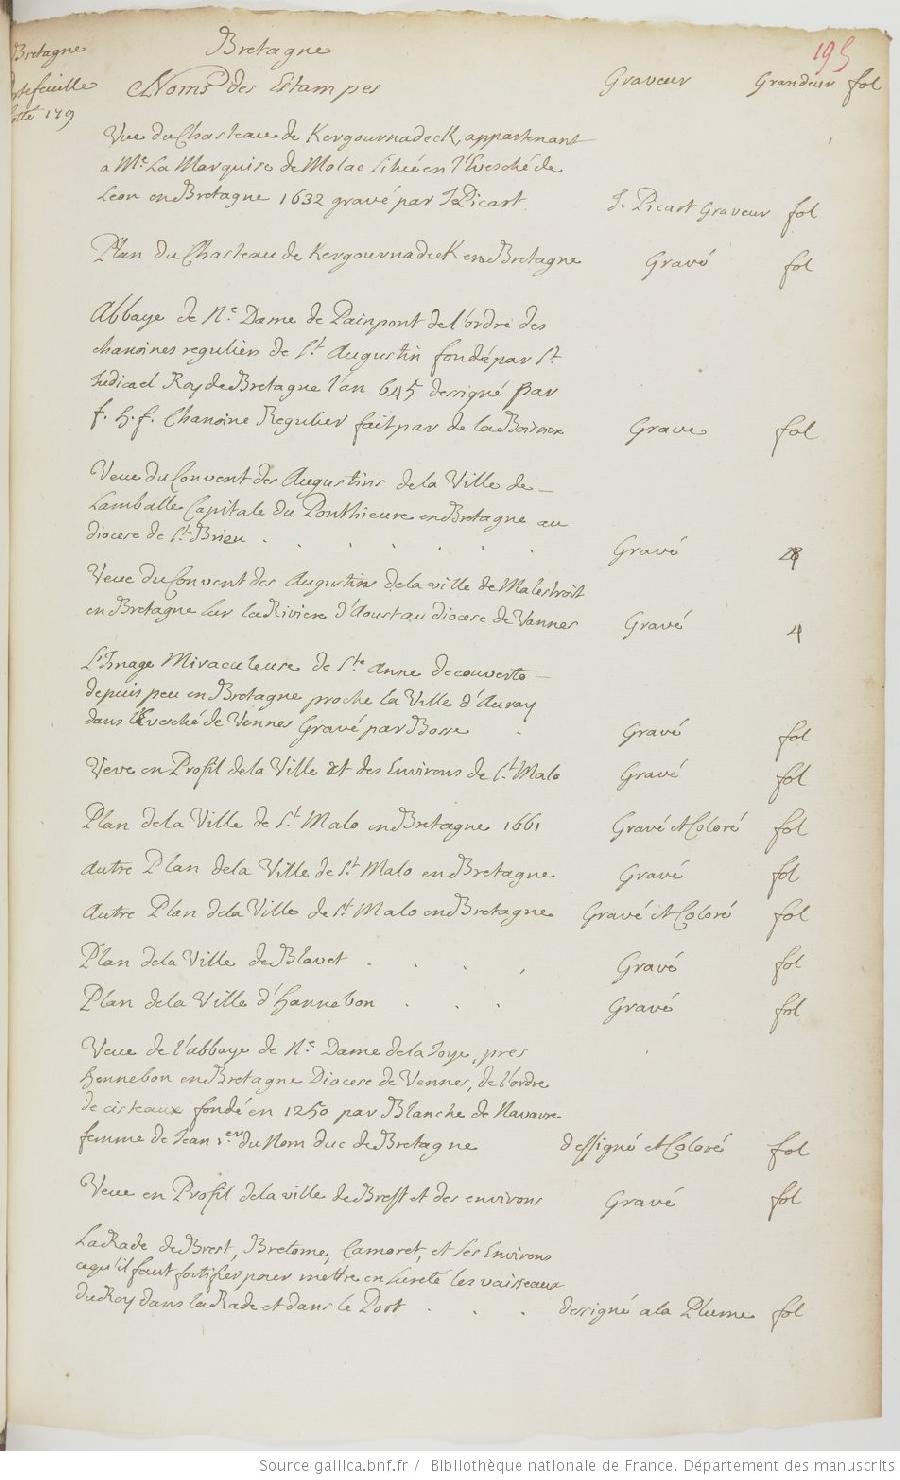 195
Bretagne
Bretagne
Noms des Estampes
Graveur
Grandeur fol
Vue du Chasteau de Kergournadeck, appartenant
a Me La Marquise de Molac Situé en l'Evesché de
Leon en Bretagne 1632 gravé par J. Picart. J. Picart Graveur fol
Plan du Chasteau de Kergournadeck en Bretagne Gravé fol
Abbaye de Ne Dame de Painpont de l'ordre des
chanoines reguliers de St Augustin fondé par St
Judicael Roy de Bretagne l'an 645 dessigné par
f. h. f. Chanoine Regulier fait par de la Boissier Grave fol
Veue du Convent des Augustins de la Ville de
Lamballe Capitale du Ponthieure en Bretagne au
diocese de St Brieu . . . . . . . Gravé 4
Veue du Convent des Augustins de la ville de Malestroit
en Bretagne sur la Riviere d'Aoust au diocese de Vannes Gravé 4
L'Image Miraculeuse de Ste Anne decouverte
depuis peu en Bretagne proche la Ville d'Auray
dans l'Evesché de Vennes Gravé par Bosse . Gravé fol
Veue en Profil de la Ville et des Environs de St Malo Gravé fol
Plan de la Ville de St Malo en Bretagne 1661 Gravé et Coloré fol
autre Plan de la Ville de St Malo en Bretagne. Gravé fol
Autre Plan de la Ville de St Malo en Bretagne Gravé et Coloré fol
Plan de la Ville de Blavet . . . . Gravé fol
Plan de la Ville d'Hannebon . . . Gravé fol
Veue de l'abbaye de Ne Dame de la Joye, pres
Hennebon en Bretagne Diocese de Vennes, de l'ordre
de cisteaux fondé en 1250 par Blanche de Navarre
femme de Jean 1er du Nom duc de Bretagne dessigné et Coloré fol
Veue en Profil de la ville de Brest et des environs Gravé fol
La Rade de Brest, Bretome, Camoret, et ses Environs
ce qu'il faut fortifier pour mettre en Sureté les vaisseaux
du Roy dans la Rade et dans le Port . . . dessigné a la Plume fol
Source gallica.bnf.fr / Bibliothèque nationale de France. Département des manuscrits